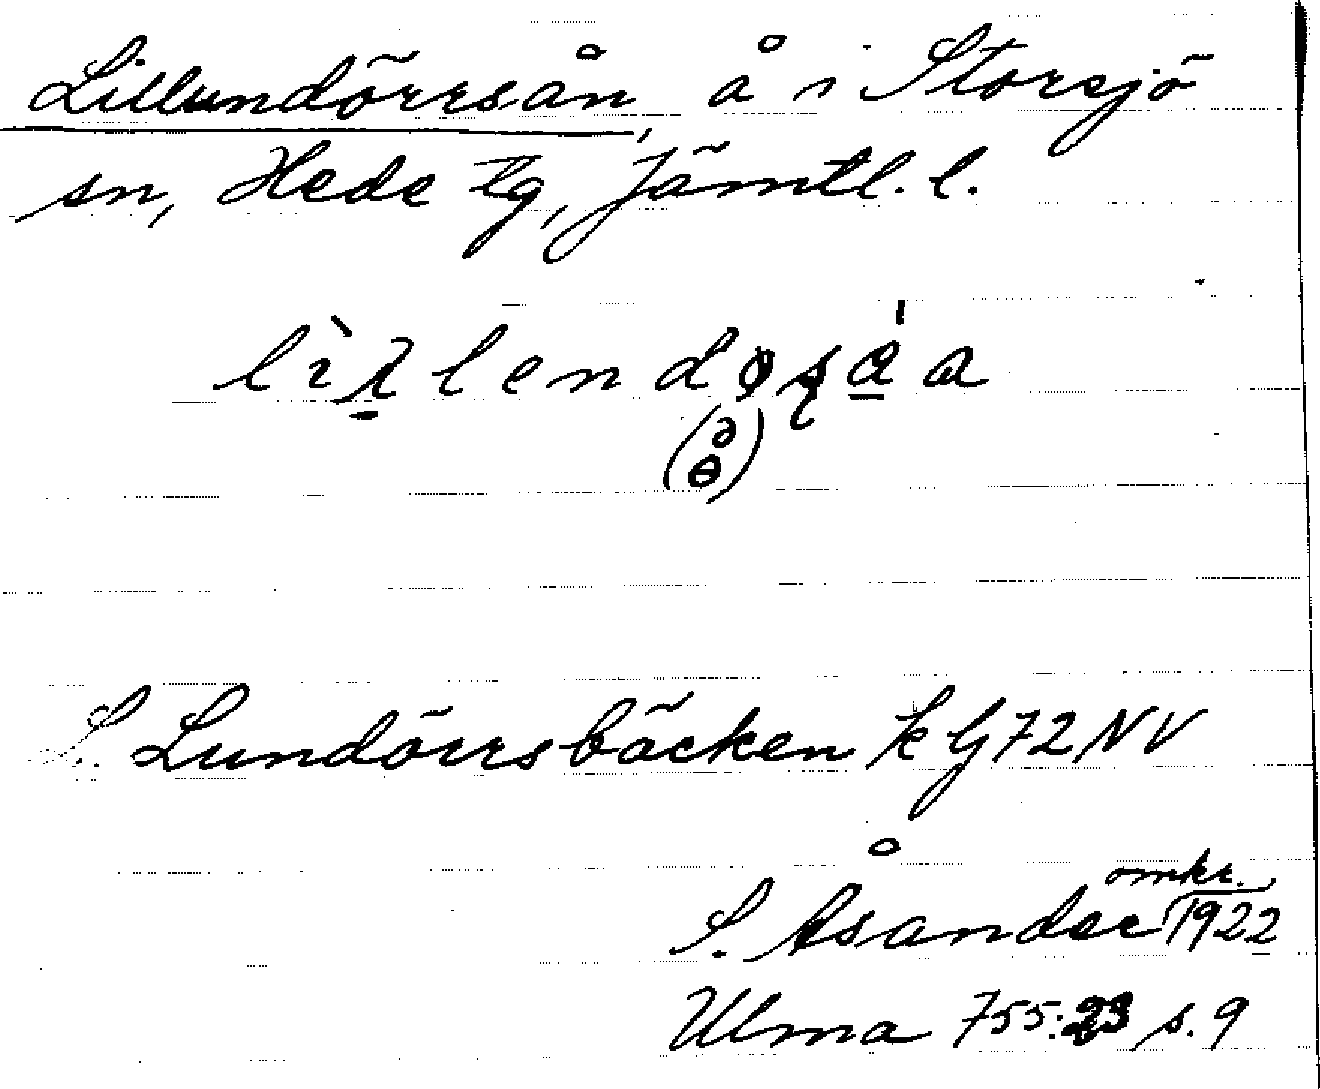 Lillundörrsån, å i Storsjö
sn, Hede tg, Jämtl. l.
S. Lundörrsbäcken k G 72 NV
omkr.
S. Åsander 1922
Ulma 755:23 s. 9